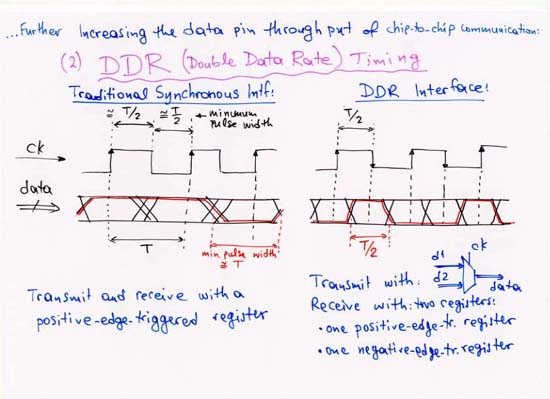 ...Further Increasing the data pin throughput of chip-to-chip communication:
(2) DDR (Double Data Rate) Timing
Traditional Synchronous Intf:
DDR Interface:
≅ T/2
≅ T/2
← minimum pulse width
T/2
ck
data
T
min. pulse width ≅ T
T/2
Transmit and receive with a
positive-edge-triggered register
Transmit with:
d1
d2
ck
data
Receive with: two registers:
• one positive-edge-tr. register
• one negative-edge-tr. register